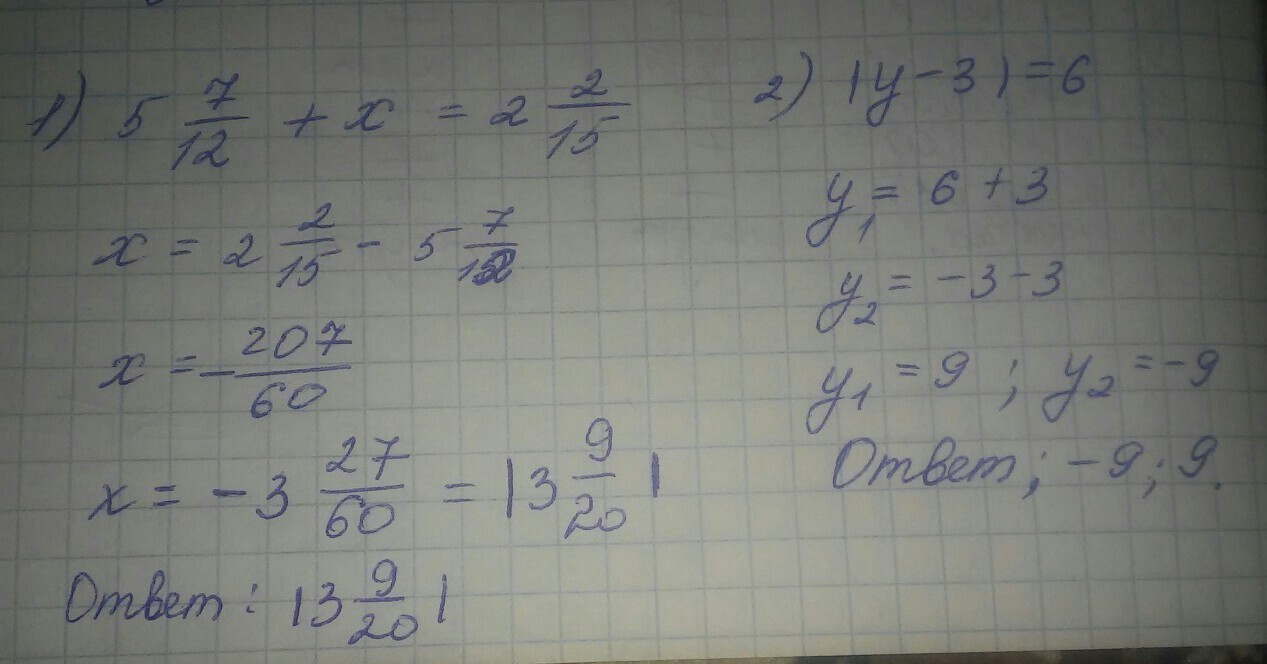 1) 5 7/12 + x = 2 2/15
x = 2 2/15 - 5 7/12
x = - 207/60
x = - 3 27/60 = |3 9/20|
Ответ: |3 9/20|
2) |y - 3| = 6
y₁ = 6 + 3
y₂ = -3 - 3
y₁ = 9 ; y₂ = -9
Ответ; -9; 9.